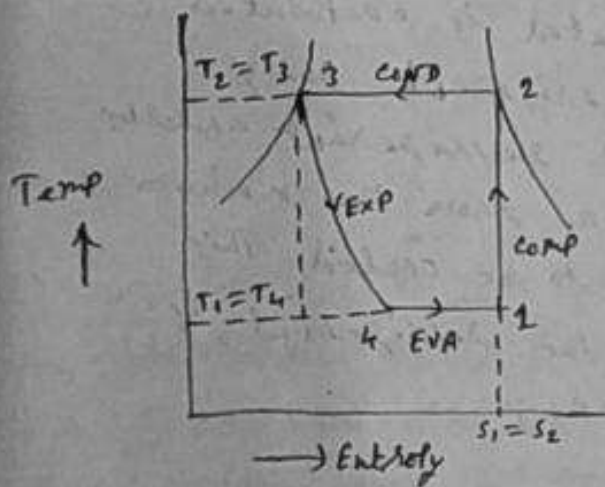 T₂ = T₃ 3 COND 2
Temp
EXP
COMP
T₁ = T₄
4 EVA 1
S₁ = S₂
Entropy